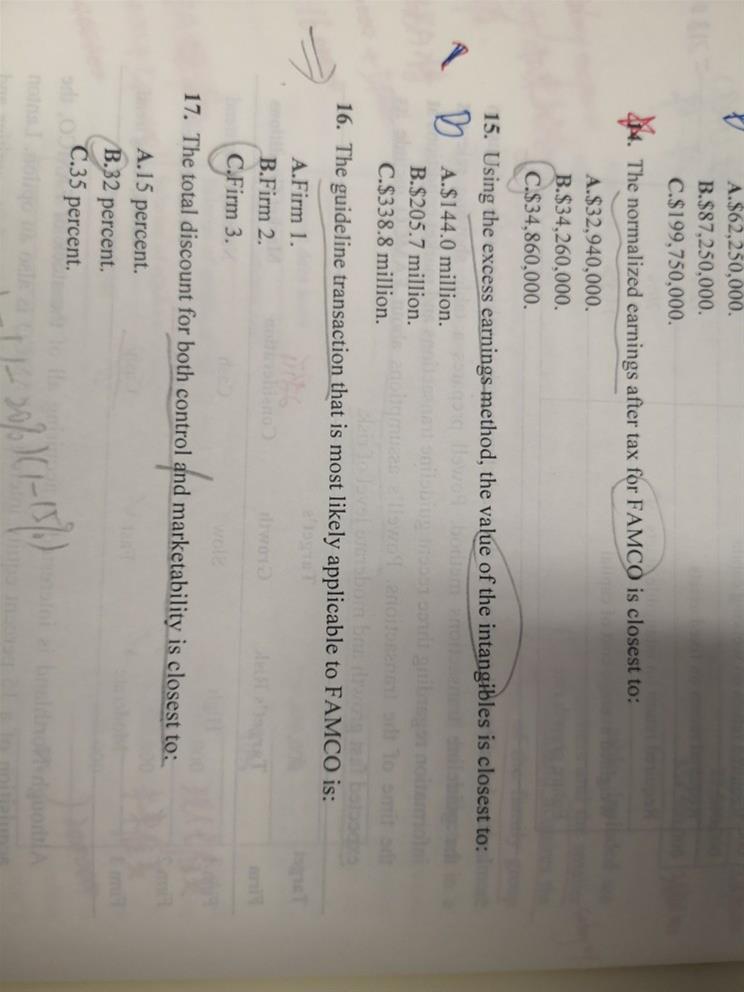 A.$62,250,000.
B.$87,250,000.
C.$199,750,000.
14. The normalized earnings after tax for FAMCO is closest to:
A.$32,940,000.
B.$34,260,000.
C.$34,860,000.
15. Using the excess earnings method, the value of the intangibles is closest to:
A.$144.0 million.
B.$205.7 million.
C.$338.8 million.
16. The guideline transaction that is most likely applicable to FAMCO is:
A.Firm 1.
B.Firm 2.
C.Firm 3.
17. The total discount for both control and marketability is closest to:
A.15 percent.
B.32 percent.
C.35 percent.